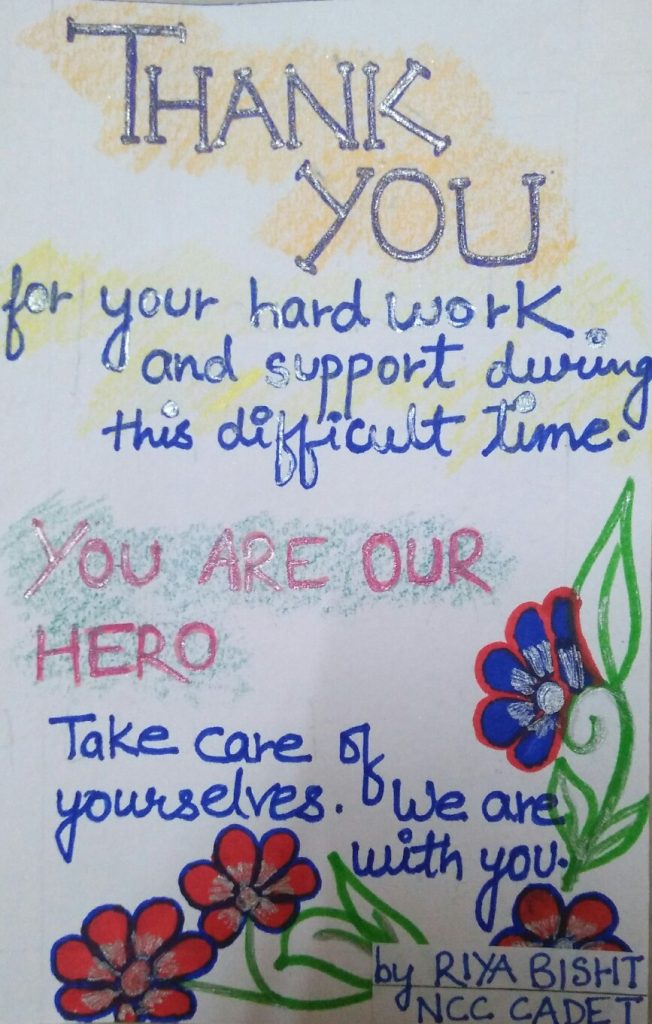 THANK
YOU
for your hard work
and support during
this difficult time.
YOU ARE OUR
HERO
Take care of
yourselves. We are
with you.
by RIYA BISHT
NCC CADET